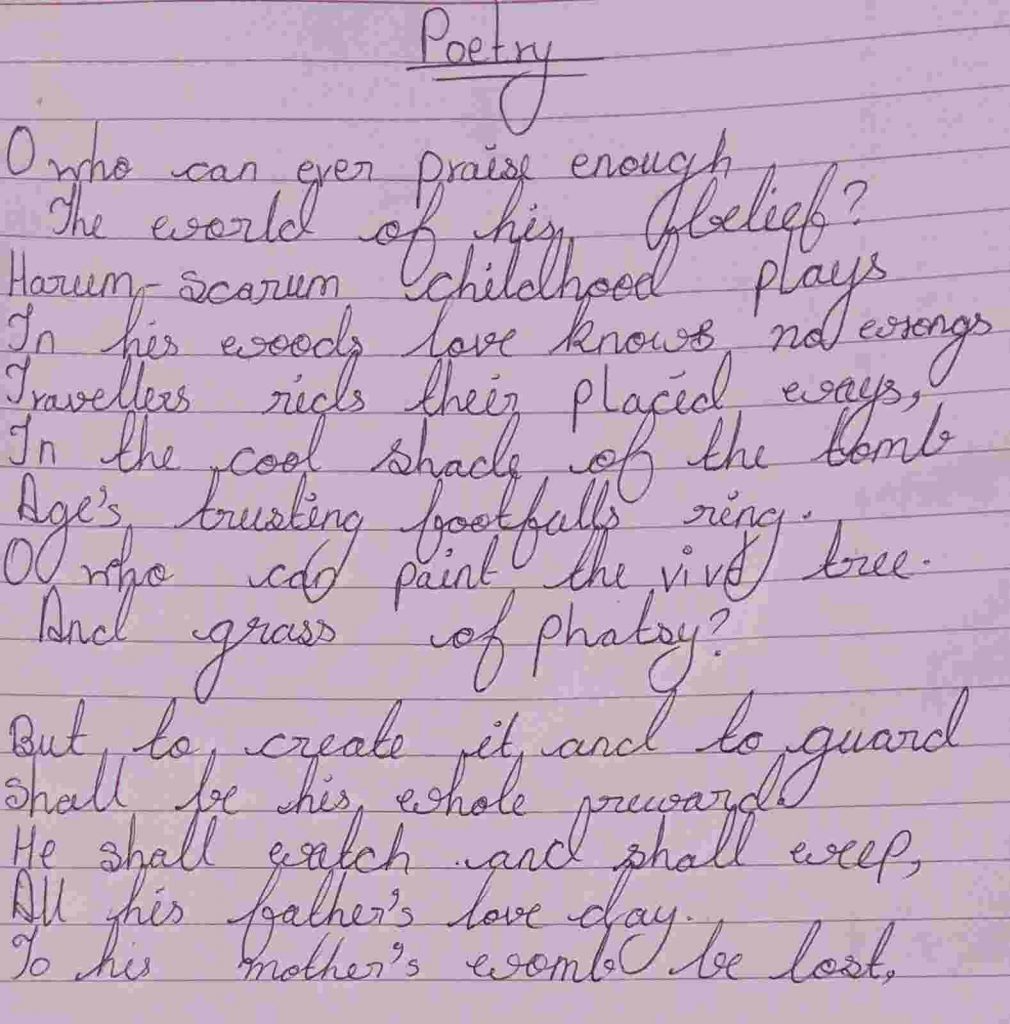 Poetry
O who can ever praise enough
The world of his belief?
Harum-scarum childhood plays
In his woods love knows no wrongs
Travellers rids their placid ways,
In the cool shade of the tomb
Age's trusting footfalls ring.
O who can paint the vivd tree.
And grass of phatsy?
But to create it and to guard
Shall be his whole reward.
He shall watch and shall weep,
All his father's love day.
To his mother's womb be lost,